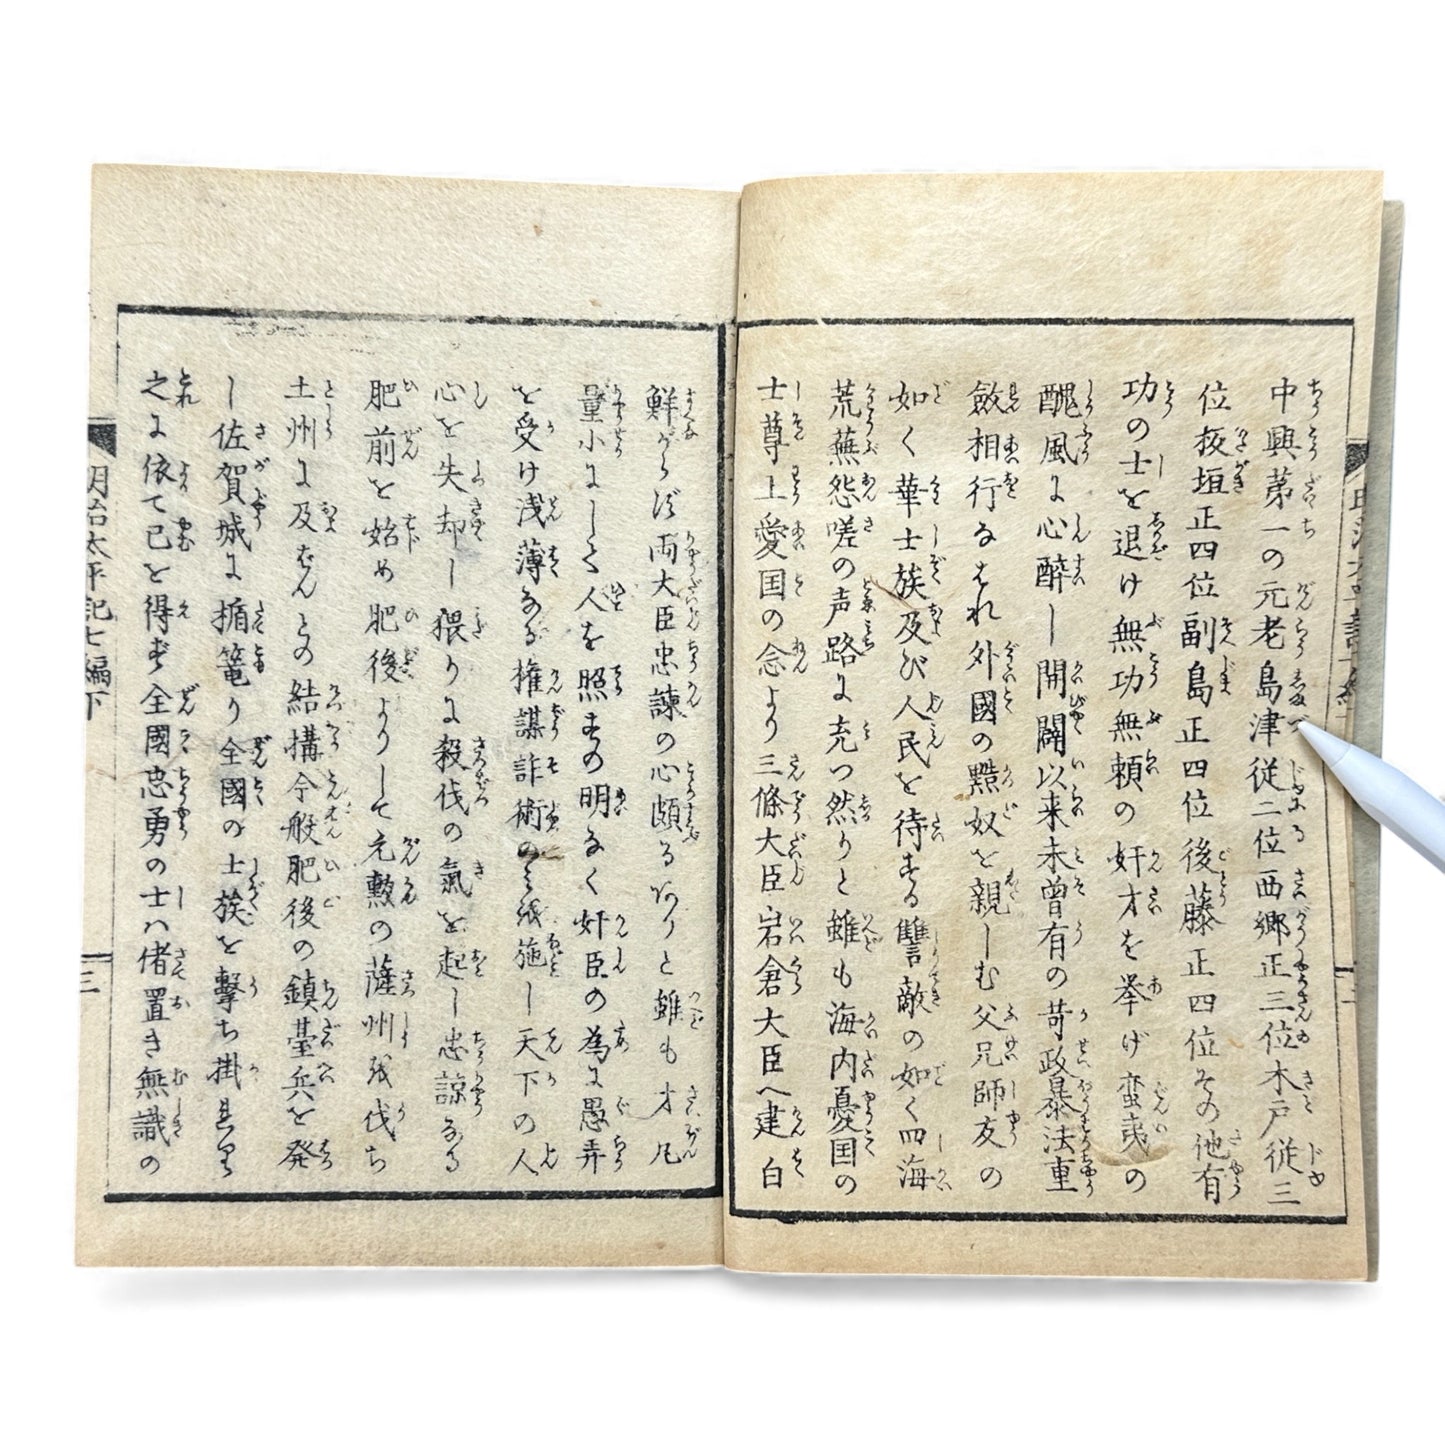 中興第一の元老島津従二位西郷正三位木戸従三
位板垣正四位副島正四位後藤正四位その他有
功の士を退け無功無頼の奸才を挙げ蛮夷の
醜風に心酔し開闢以来未曾有の苛政暴法重
斂相行なはれ外國の黠奴を親しむ父兄師友の
如く華士族及び人民を待する讐敵の如く四海
荒蕪怨嗟の声路に充つ然りと雖も海内憂国の
士尊上愛国の念より三條大臣岩倉大臣へ建白
鮮からず両大臣忠諫の心頗るありと雖も才凡
量小にして人を照すの明なく奸臣の為に愚弄
を受け浅薄なる権謀詐術のみを施し天下の人
心を失却し猥りに殺伐の氣を起し忠諒なる
肥前を始め肥後よりして元勲の薩州を伐ち
土州に及ばんとの結構今般肥後の鎮臺兵を発
し佐賀城に楯篭り全國の士族を撃ち掛
之に依て已を得ず全國忠勇の士は偖置き無識の
明治太平記七編下
三